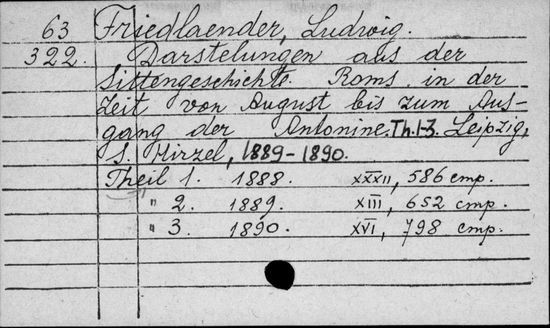 63 Friedlaender, Ludwig.
322. Darstelungen aus der
Sittengeschichte Roms in der
Zeit von August bis zum Aus-
gang der Antonine. Th. 1-3. Leipzig,
S. Hirzel, 1889-1890.
Theil 1. 1888. XXXII, 586 cmp.
" 2. 1889. XIII, 652 cmp.
" 3. 1890. XVI, 798 cmp.